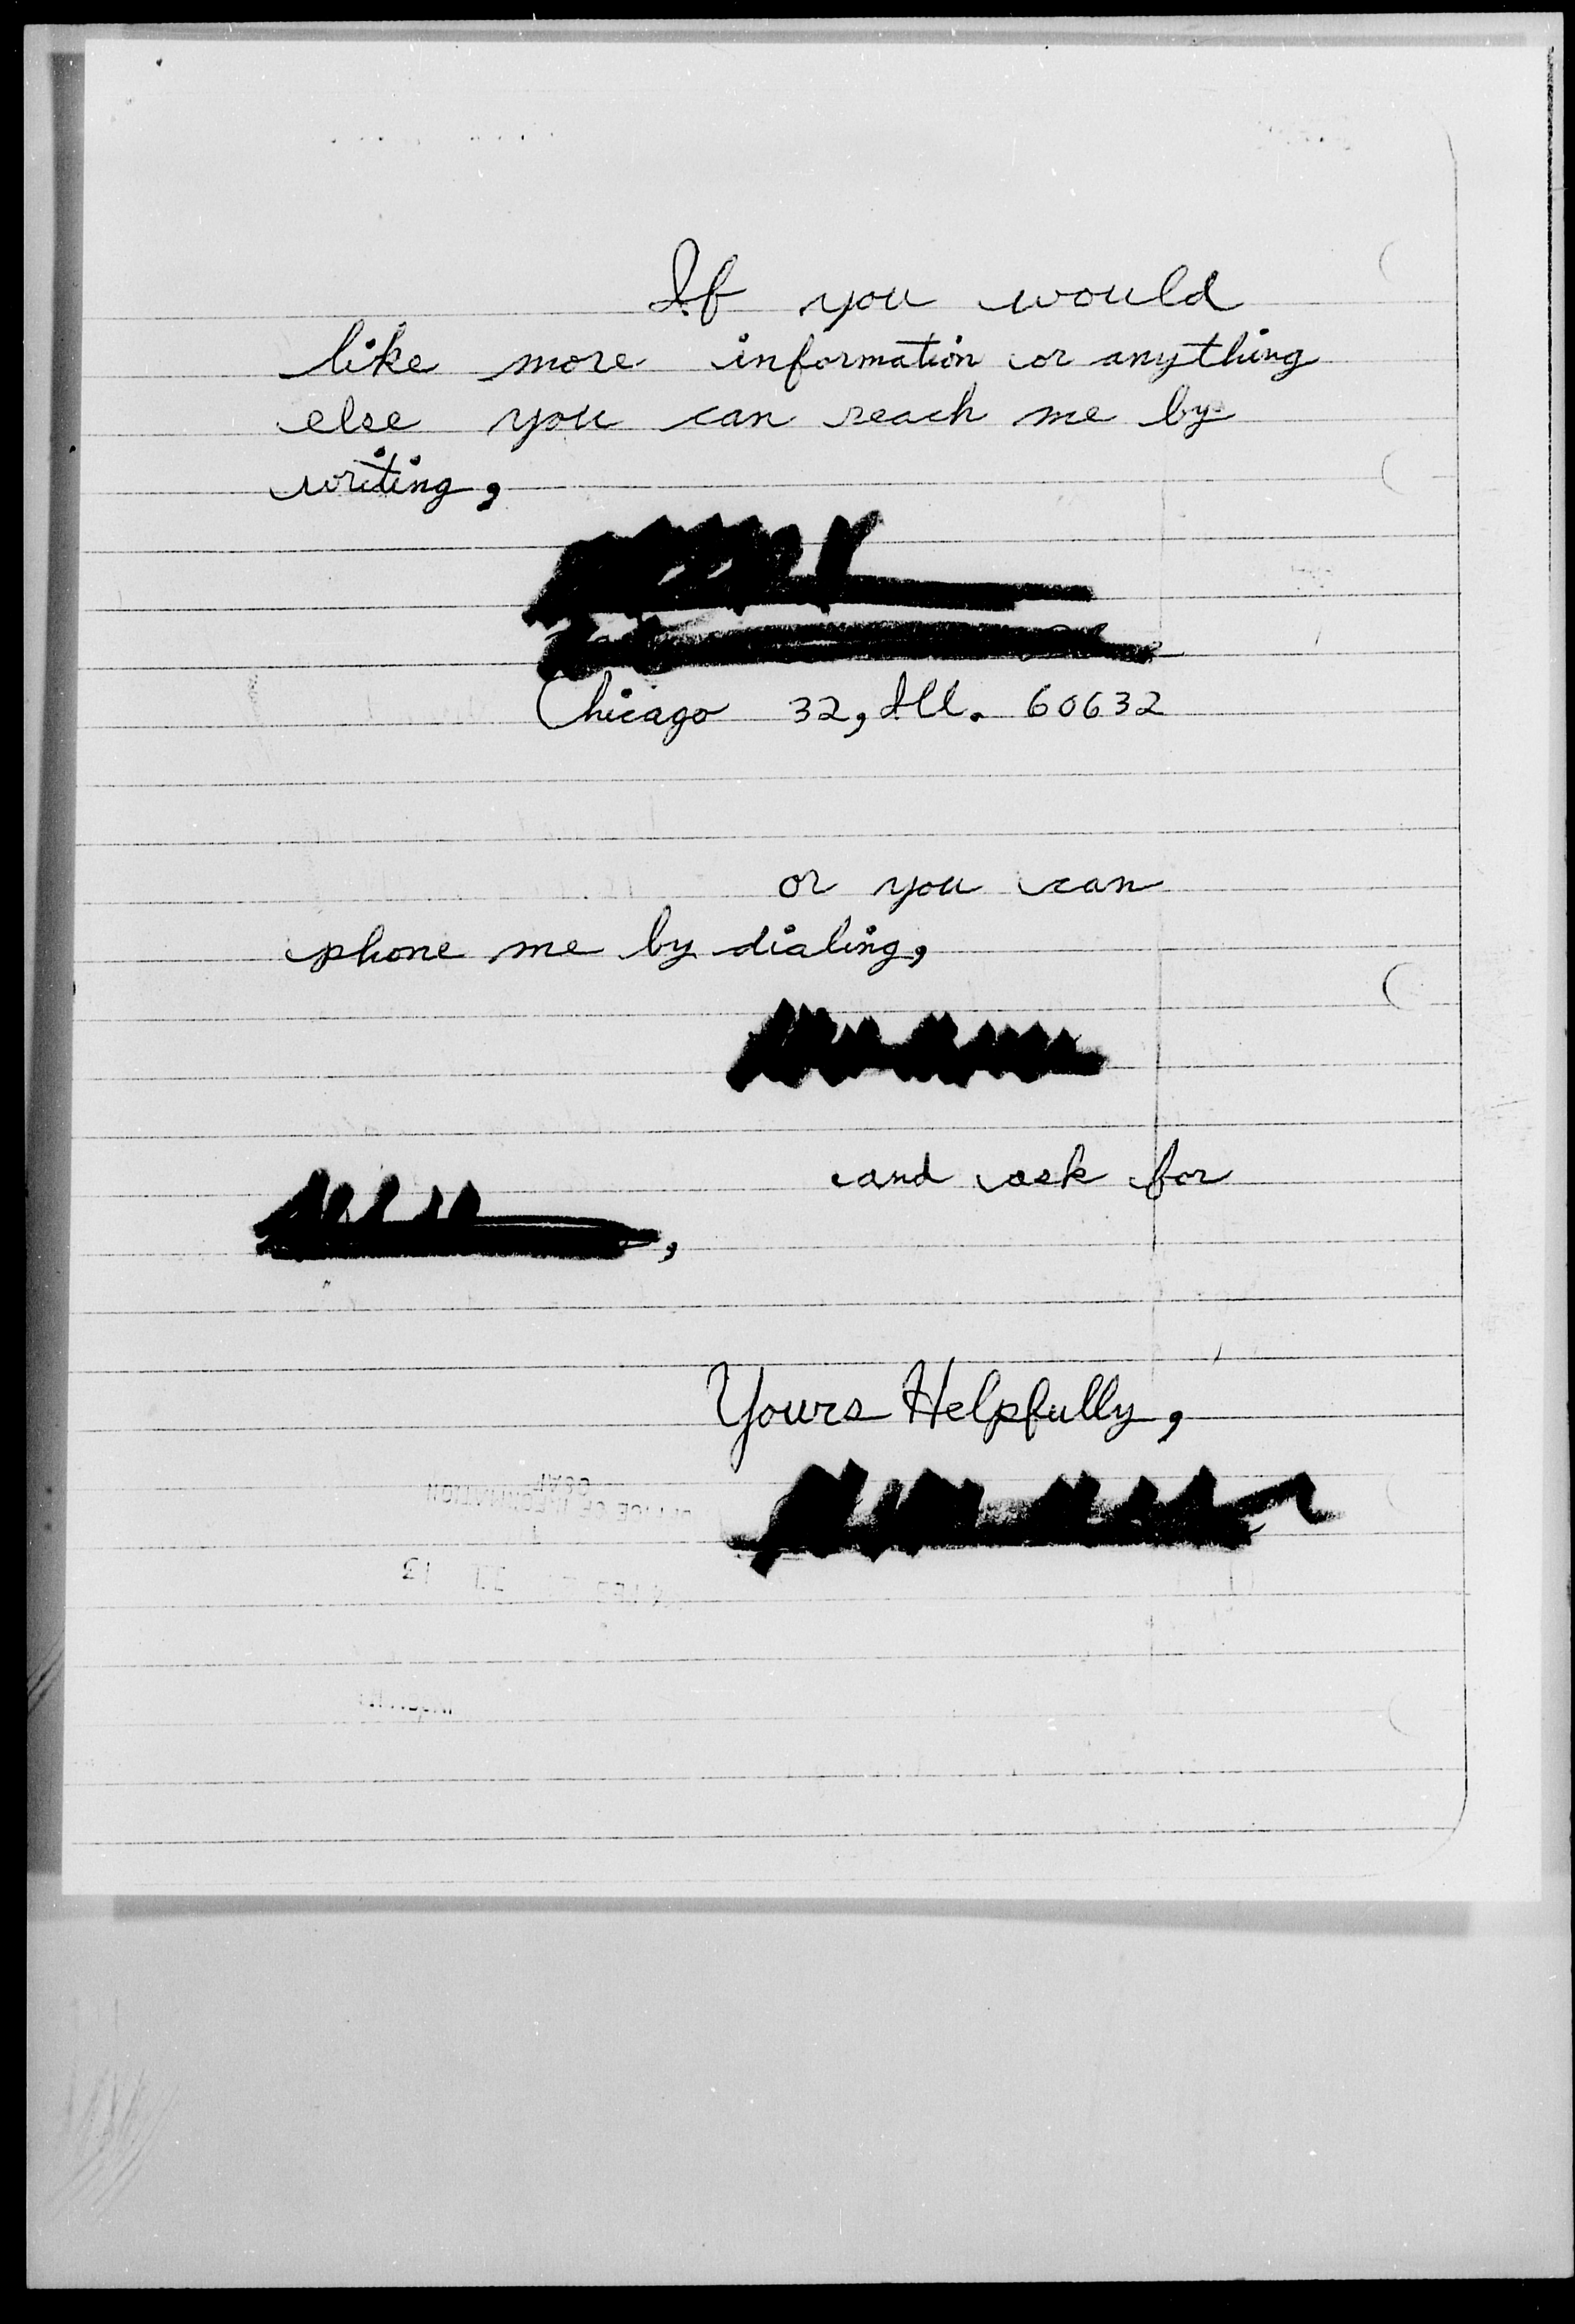 If you would
like more information or anything
else you can reach me by
writing,
Chicago 32, Ill. 60632
or you can
phone me by dialing,
and ask for
,
Yours Helpfully,
OFFICE OF INFORMATION